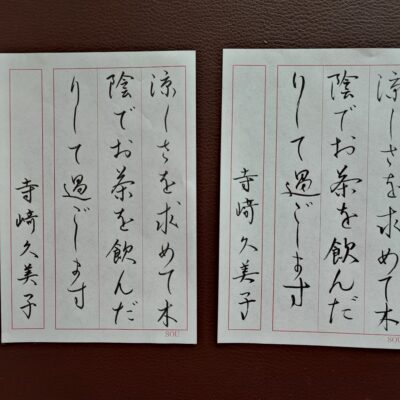 涼しさを求めて木
陰でお茶を飲んだ
りして過ごします
寺﨑久美子
SOU
涼しさを求めて木
陰でお茶を飲んだ
りして過ごします
寺﨑久美子
SOU